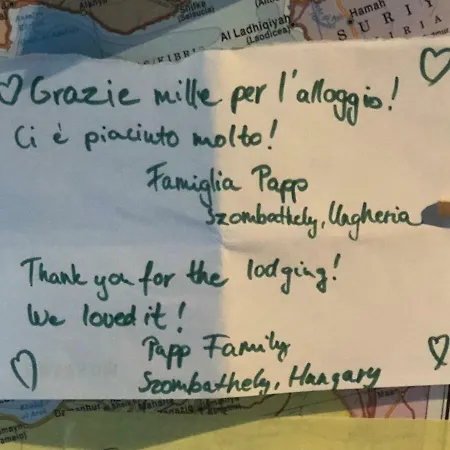 Al Ladhiqiyah
Hamah
SURIY
Grazie mille per l'alloggio!
Ci è piaciuto molto!
Famiglia Papp
Szombathely, Ungheria
Thank you for the lodging!
We loved it!
Papp Family
Szombathely, Hungary